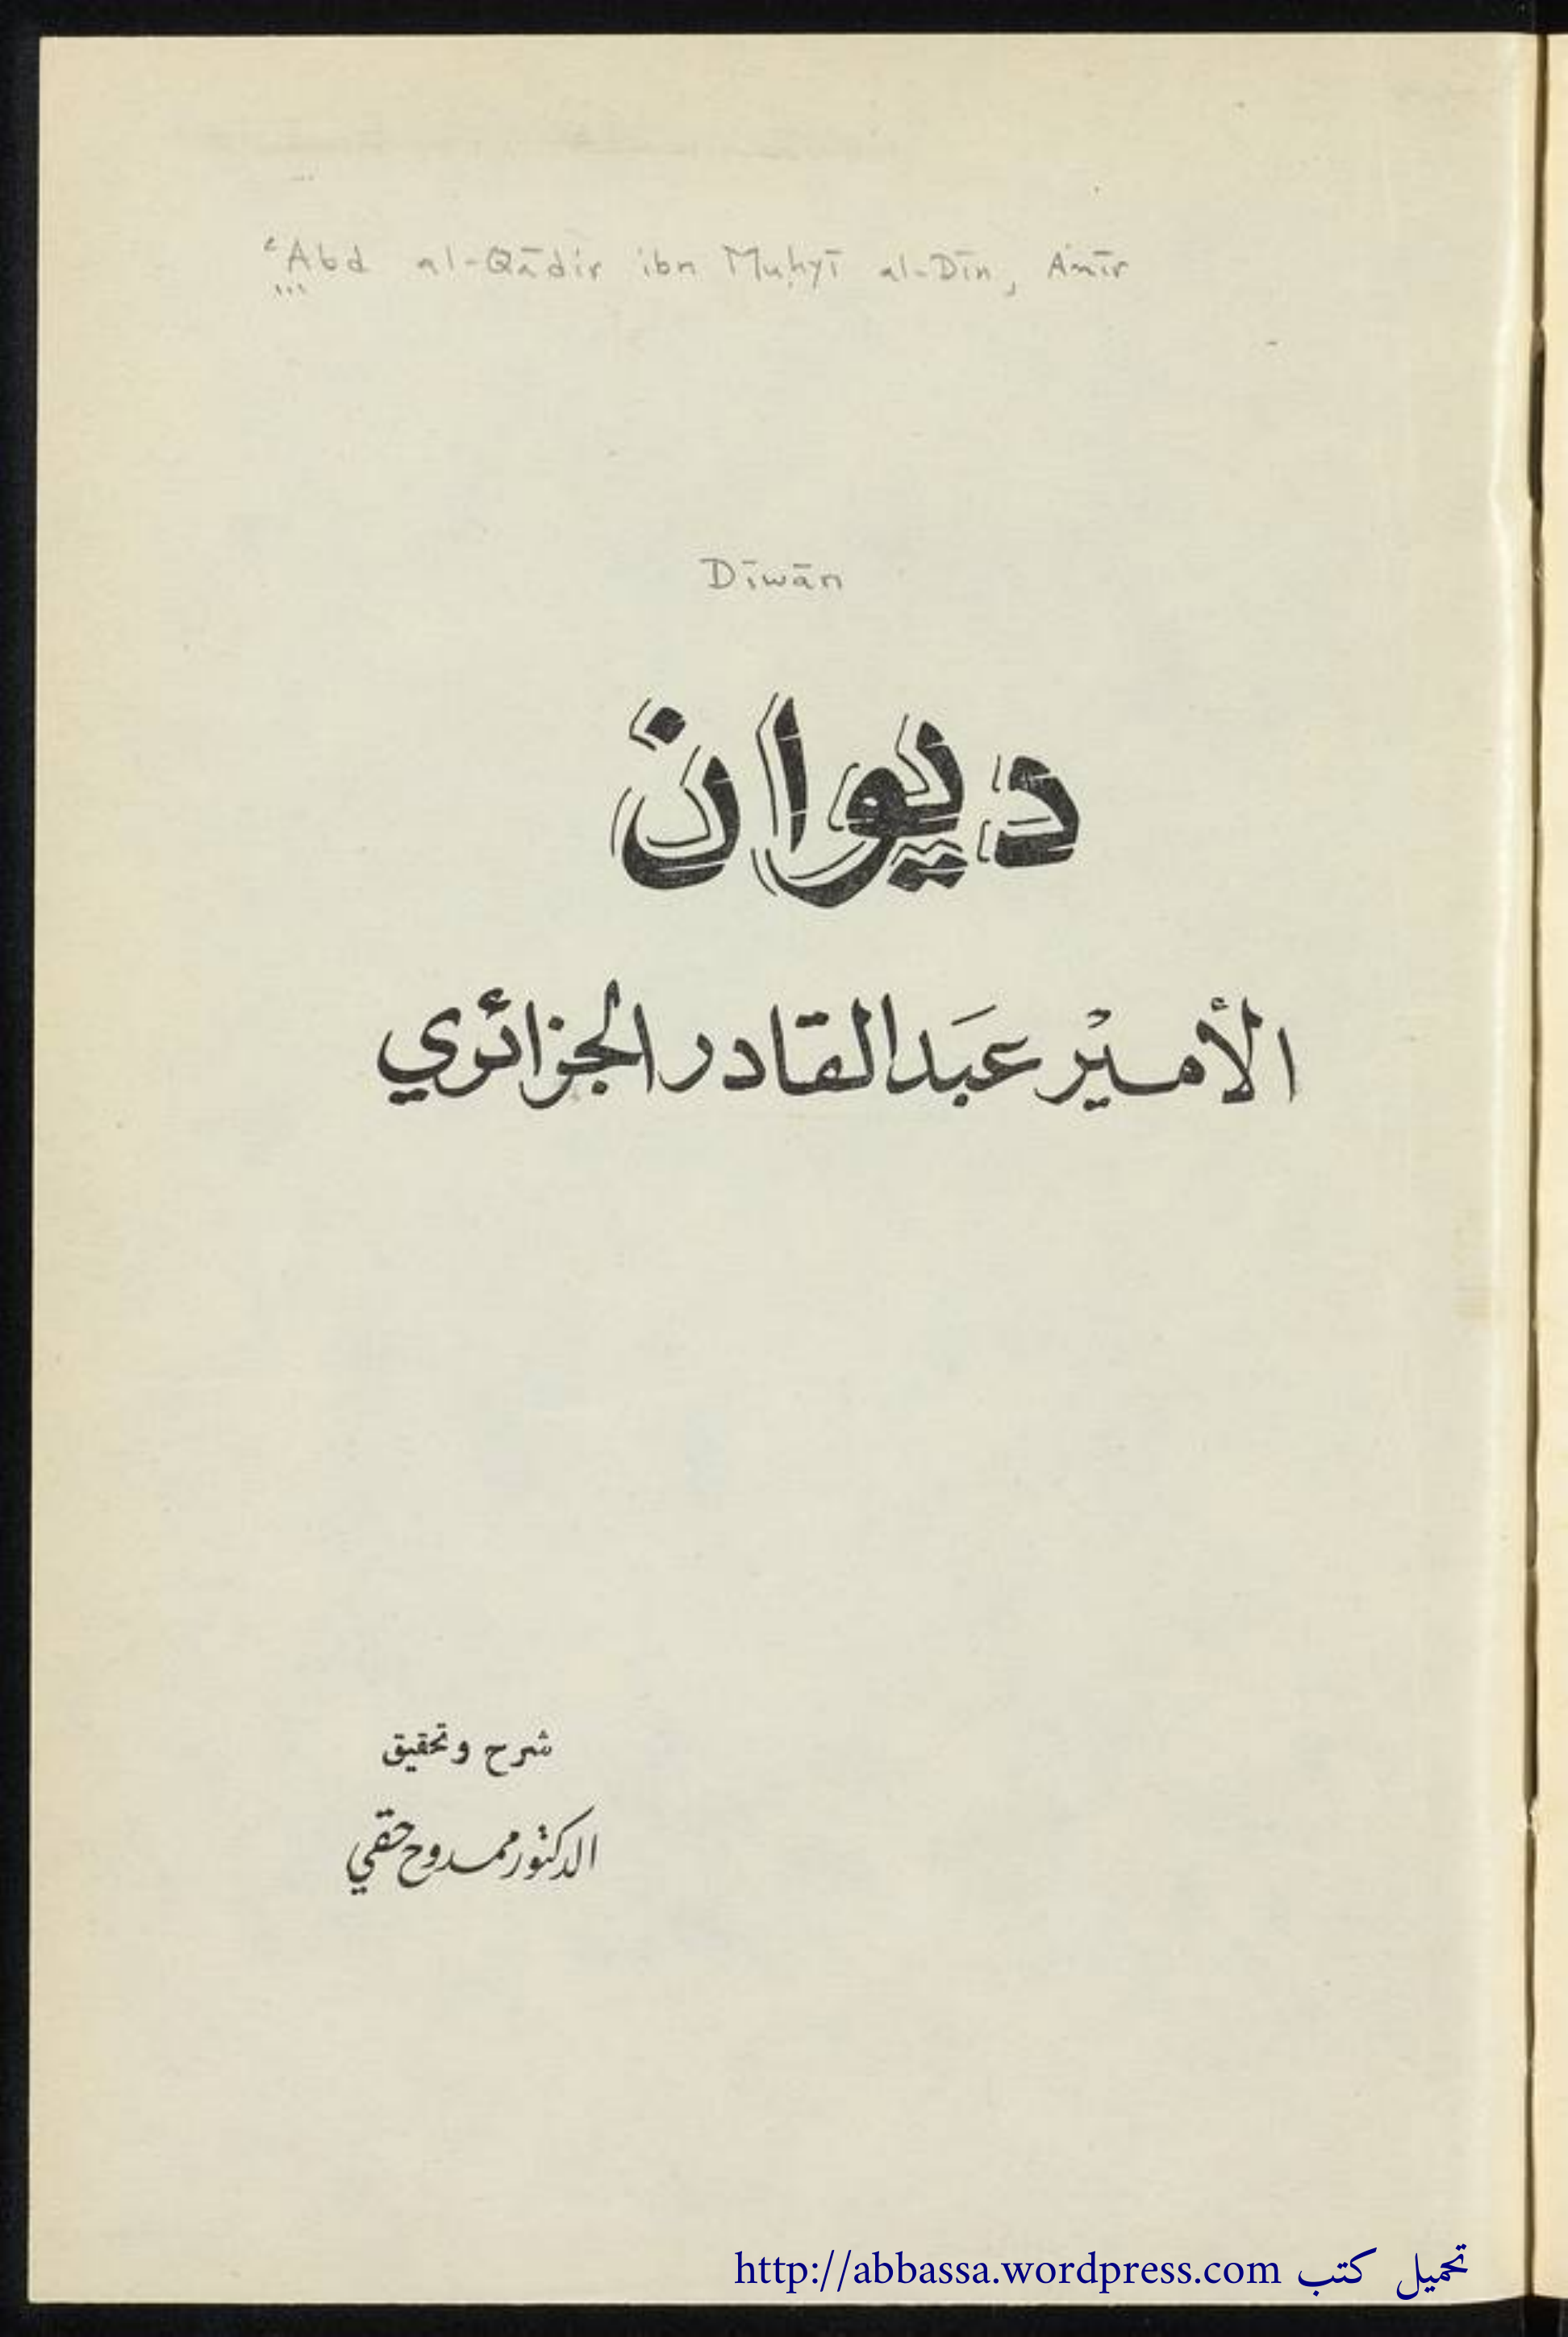 ʿAbd al-Qādir ibn Muḥyī al-Dīn, Amīr
Dīwān
ديوان
الأمير عَبدالقادر الجزائري
شرح وتحقيق
الدكتور ممدوح حقي
تحميل كتب http://abbassa.wordpress.com